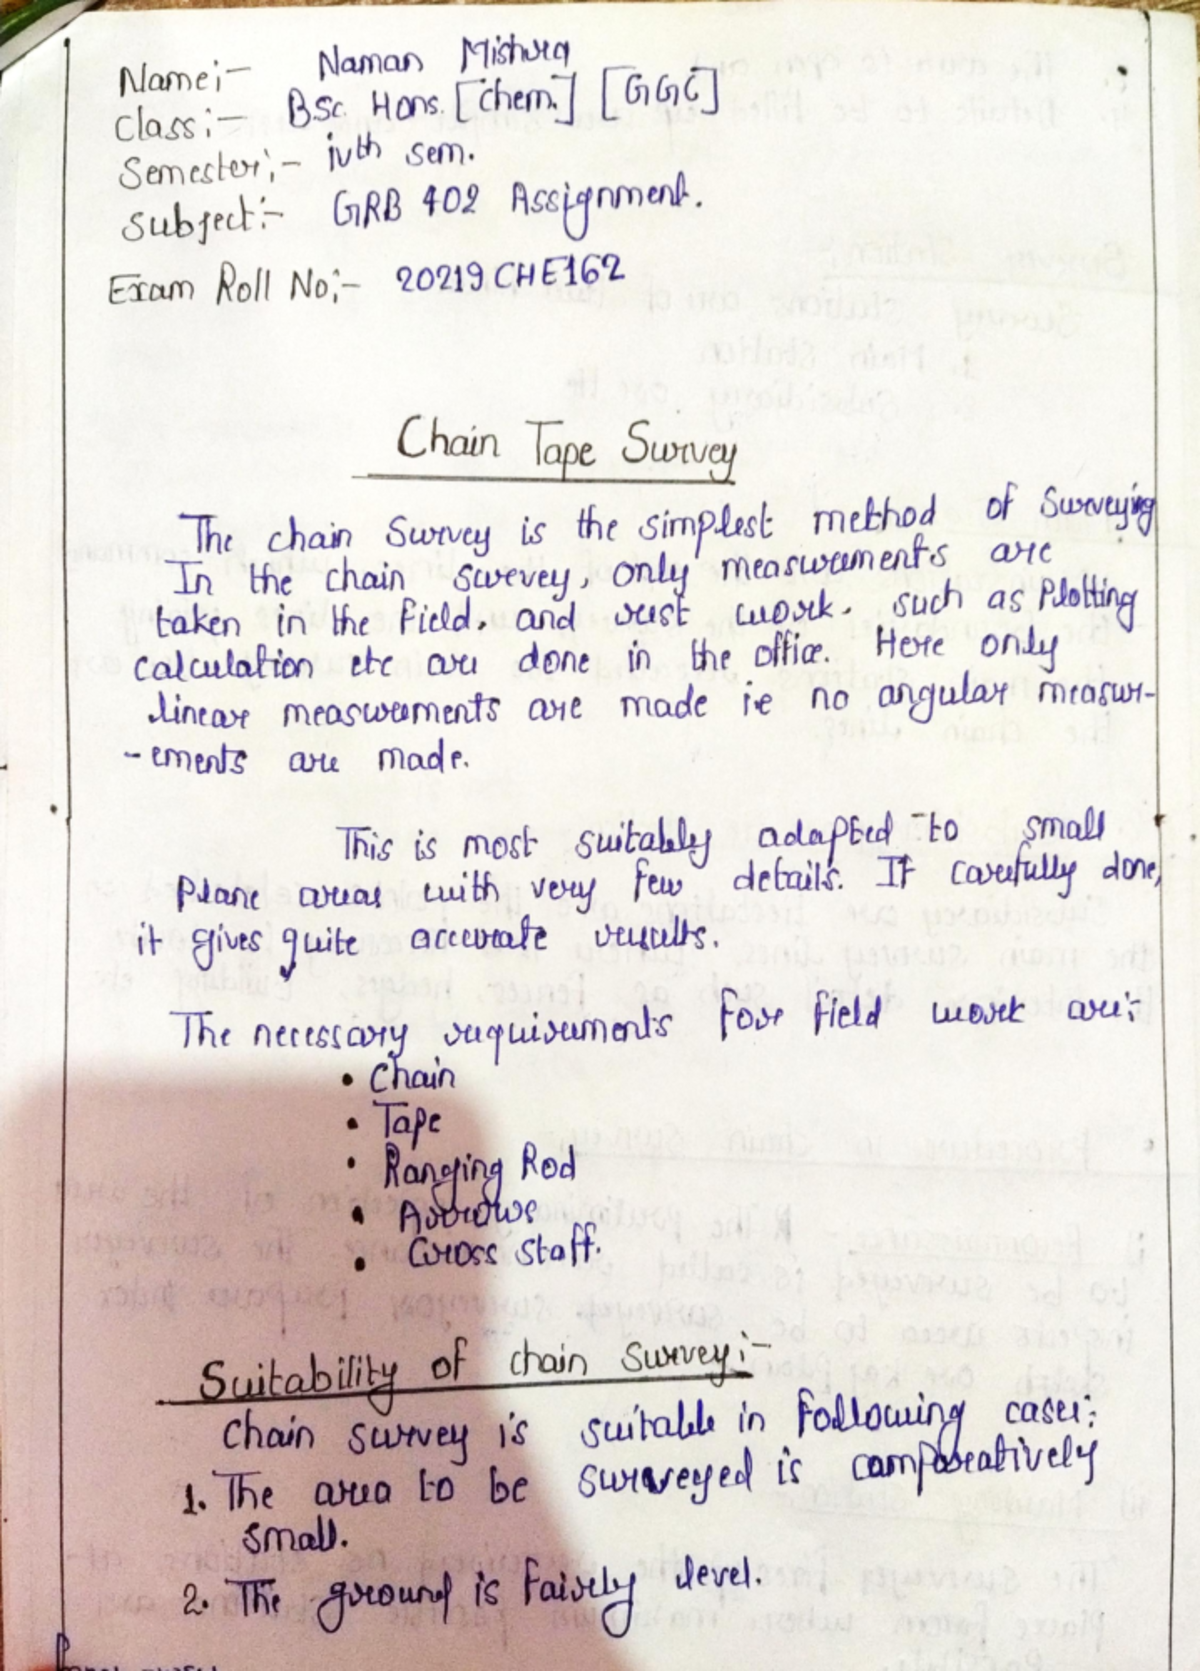 Name:- Naman Mishra
Class:- BSc Hons. [Chem.] [GGC]
Semester:- ivth sem.
Subject:- GRB 402 Assignment.
Exam Roll No:- 20219CHE162
Chain Tape Survey
The chain Survey is the simplest method of Surveying
In the chain survey, only measurements are
taken in the field, and rest work. such as Plotting
calculation etc are done in the office. Here only
linear measurements are made ie no angular measur-
-ements are made.
This is most suitably adapted to small
Plane areas with very few details. If carefully done,
it gives quite accurate results.
The necessary requirements for field work are:-
• Chain
• Tape
• Ranging Rod
• Arrows
• Cross Staff.
Suitability of chain Survey:-
Chain survey is suitable in following cases:
1. The area to be surveyed is comparatively
small.
2. The ground is fairly level.